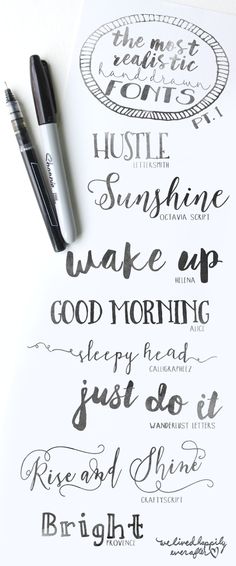 the most
realistic
hand drawn
FONTS
PT. 1
HUSTLE
LETTERSMITH
Sharpie
Sunshine
OCTAVIA SCRIPT
wake up
HELENA
GOOD MORNING
ALICE
sleepy head
CALLIGRAPHEEZ
just do it
WANDERLUST LETTERS
Rise and Shine
CRAFTYSCRIPT
Bright
PROVENCE
we lived happily
ever after